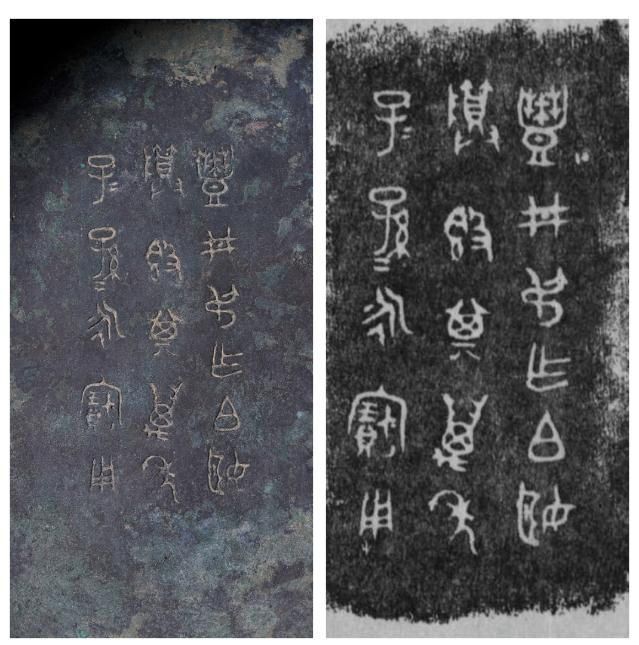 豐井叔乍白姬
尊簋其萬年
子=孫=永寶用
豐井叔乍白姬
尊簋其萬年
子=孫=永寶用